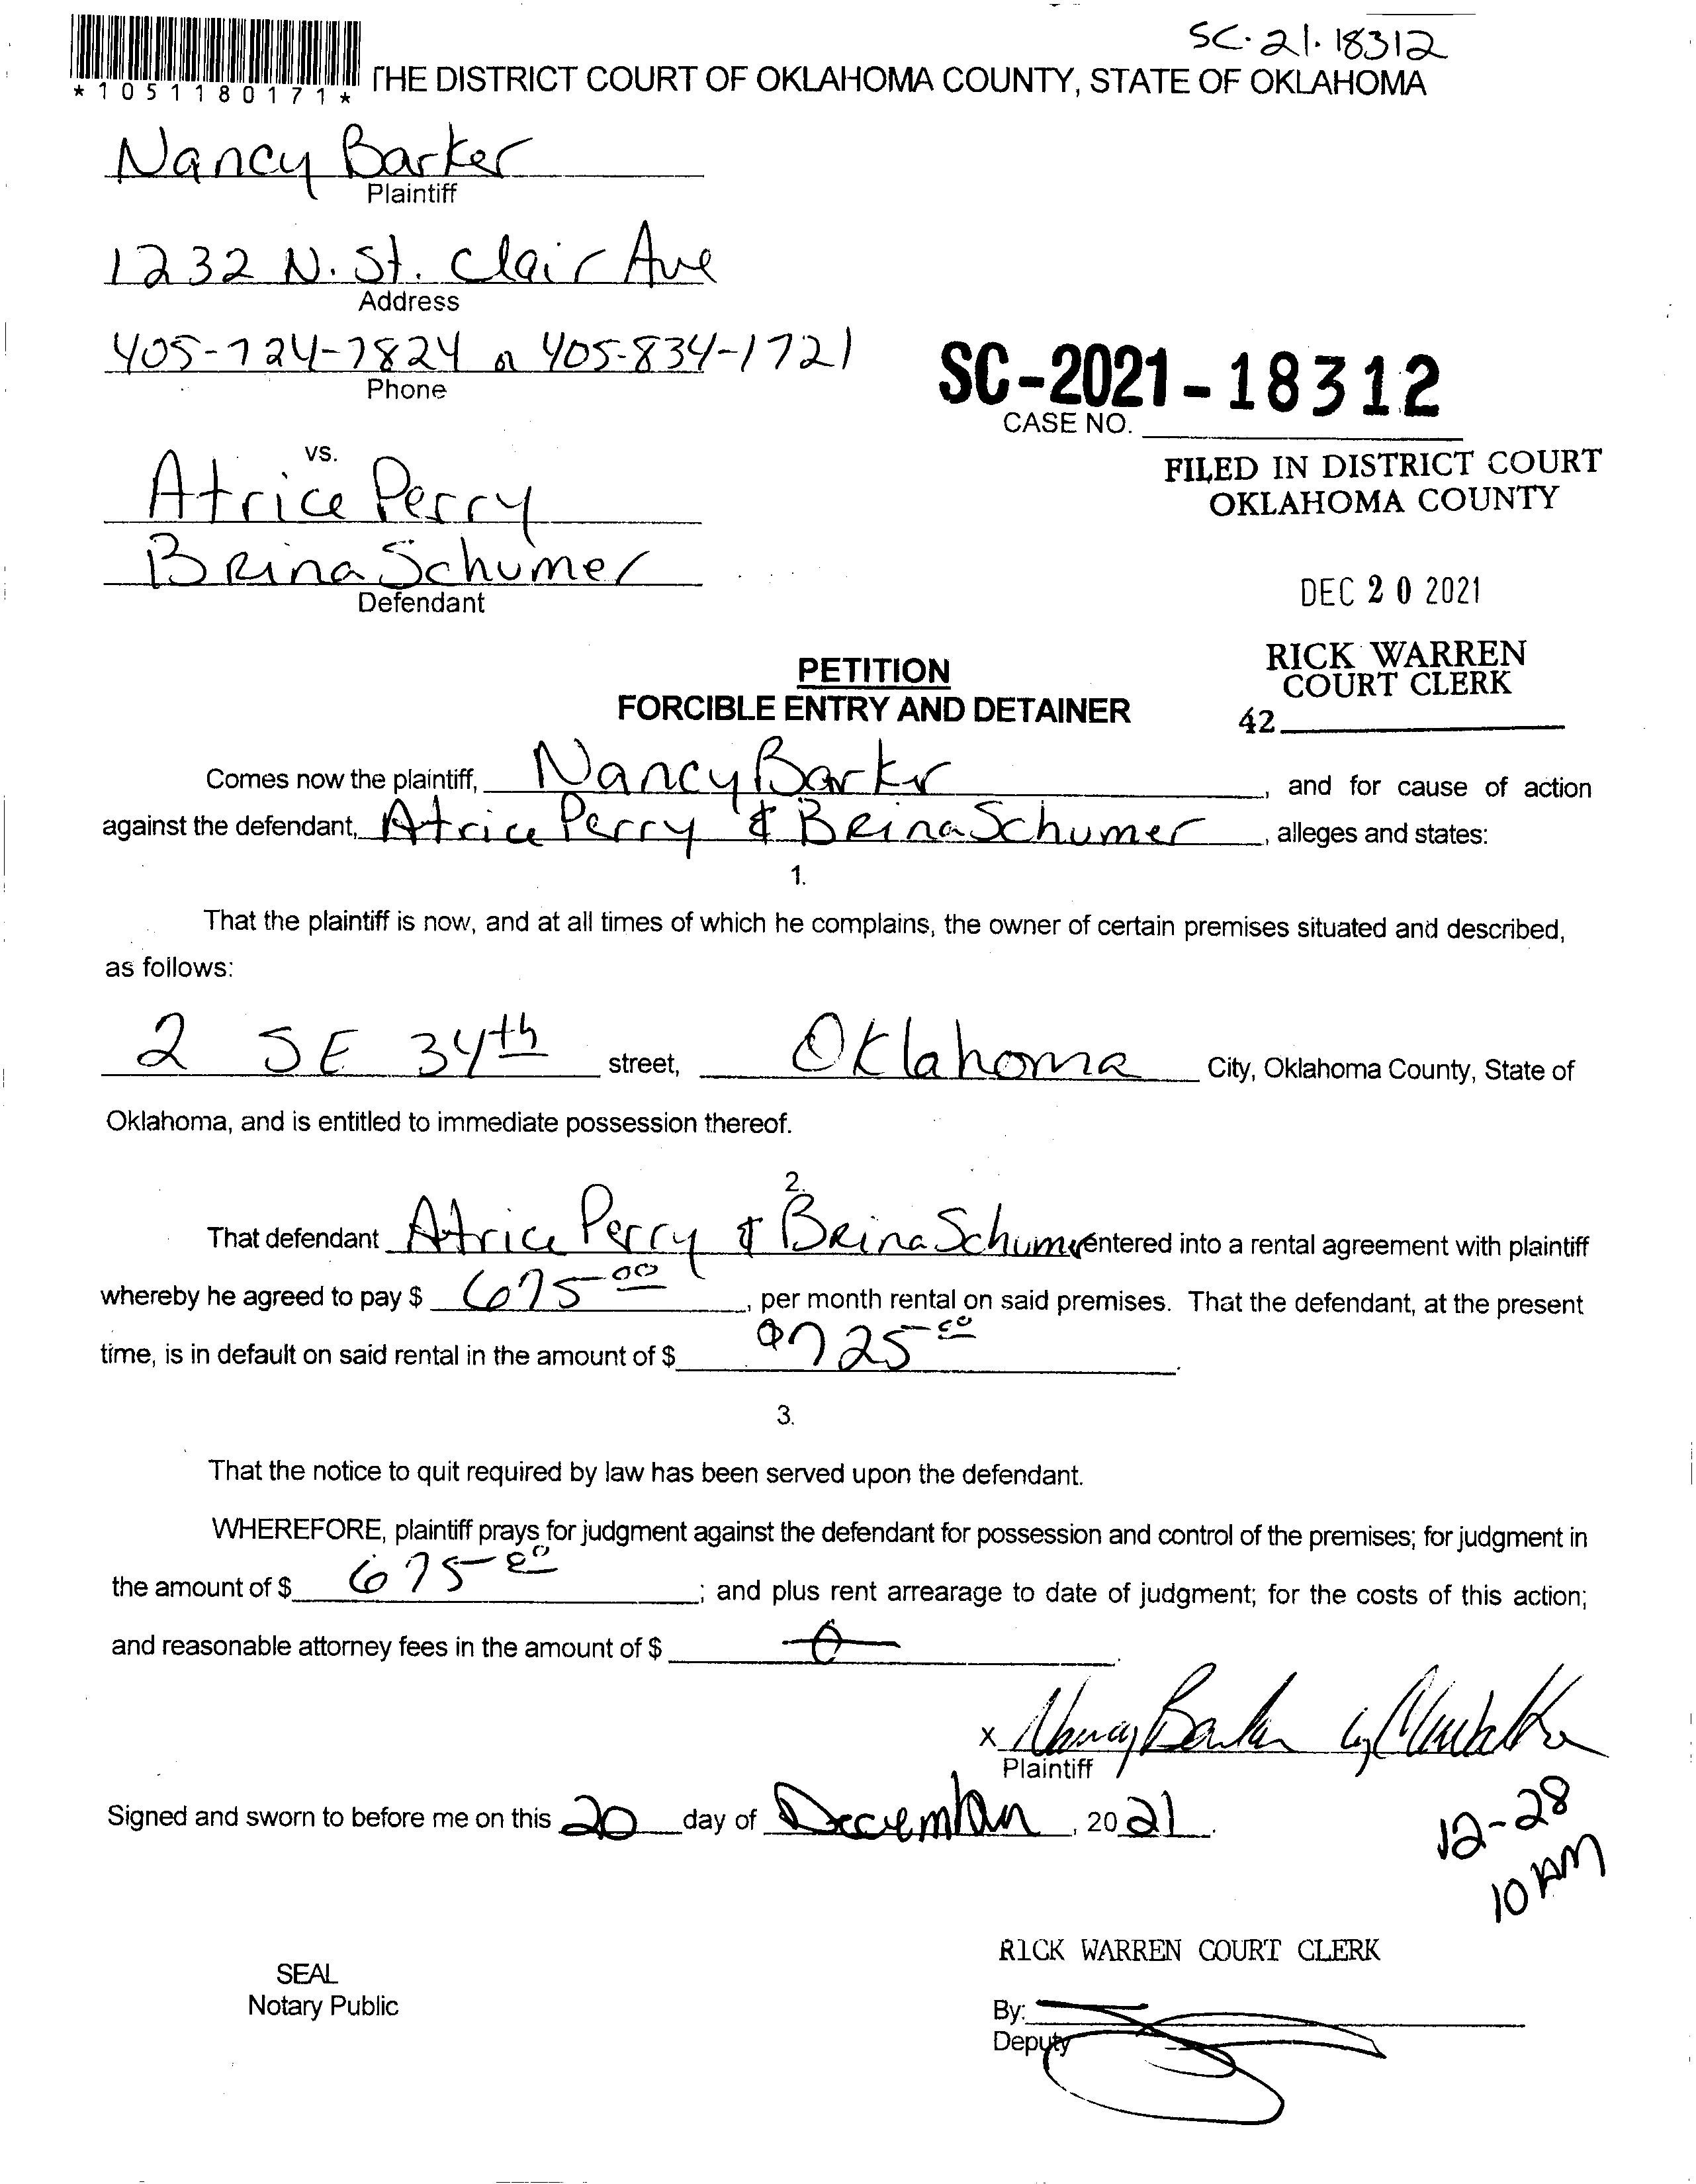 SC-21-18312
*1051180171* THE DISTRICT COURT OF OKLAHOMA COUNTY, STATE OF OKLAHOMA
Nancy Barker
Plaintiff
1232 N. St. Clair Ave
Address
405-724-7824 or 405-834-1721
Phone
SC-2021-18312
CASE NO.
vs.
FILED IN DISTRICT COURT
OKLAHOMA COUNTY
Atrice Perry
Brina Schumer
Defendant
DEC 20 2021
RICK WARREN
COURT CLERK
42
PETITION
FORCIBLE ENTRY AND DETAINER
Comes now the plaintiff, Nancy Barker, and for cause of action
against the defendant, Atrice Perry & Brina Schumer, alleges and states:
1.
That the plaintiff is now, and at all times of which he complains, the owner of certain premises situated and described,
as follows:
2 SE 34th street, Oklahoma City, Oklahoma County, State of
Oklahoma, and is entitled to immediate possession thereof.
2.
That defendant Atrice Perry & Brina Schumer entered into a rental agreement with plaintiff
whereby he agreed to pay $ 675 00, per month rental on said premises. That the defendant, at the present
time, is in default on said rental in the amount of $ 9725 00.
3.
That the notice to quit required by law has been served upon the defendant.
WHEREFORE, plaintiff prays for judgment against the defendant for possession and control of the premises; for judgment in
the amount of $ 675 00; and plus rent arrearage to date of judgment; for the costs of this action;
and reasonable attorney fees in the amount of $ 0.
x Nancy Barker by
Plaintiff
Signed and sworn to before me on this 20 day of December, 2021.
12-28
10 AM
RICK WARREN COURT CLERK
SEAL
Notary Public
By:
Deputy